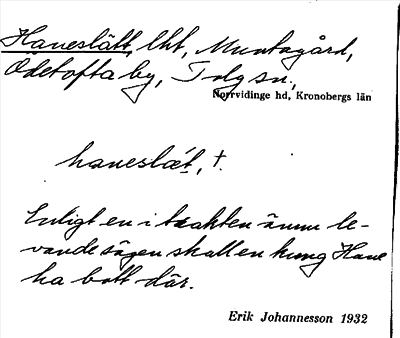 Haneslätt, lht, Muntagård,
Odetofta by, Tolg sn,
Norrvidinge hd, Kronobergs län
haneslæt, †.
Enligt en i trakten ännu le-
vande sägen skall en kung Hane
ha bott där.
Erik Johannesson 1932